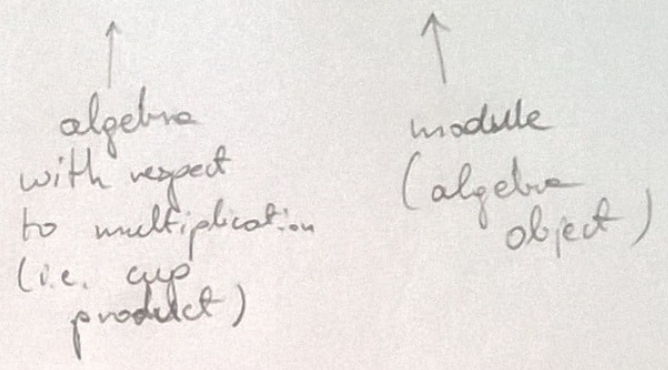 algebra
with respect
to multiplication
(i.e. cup
product)
module
(algebra
object)